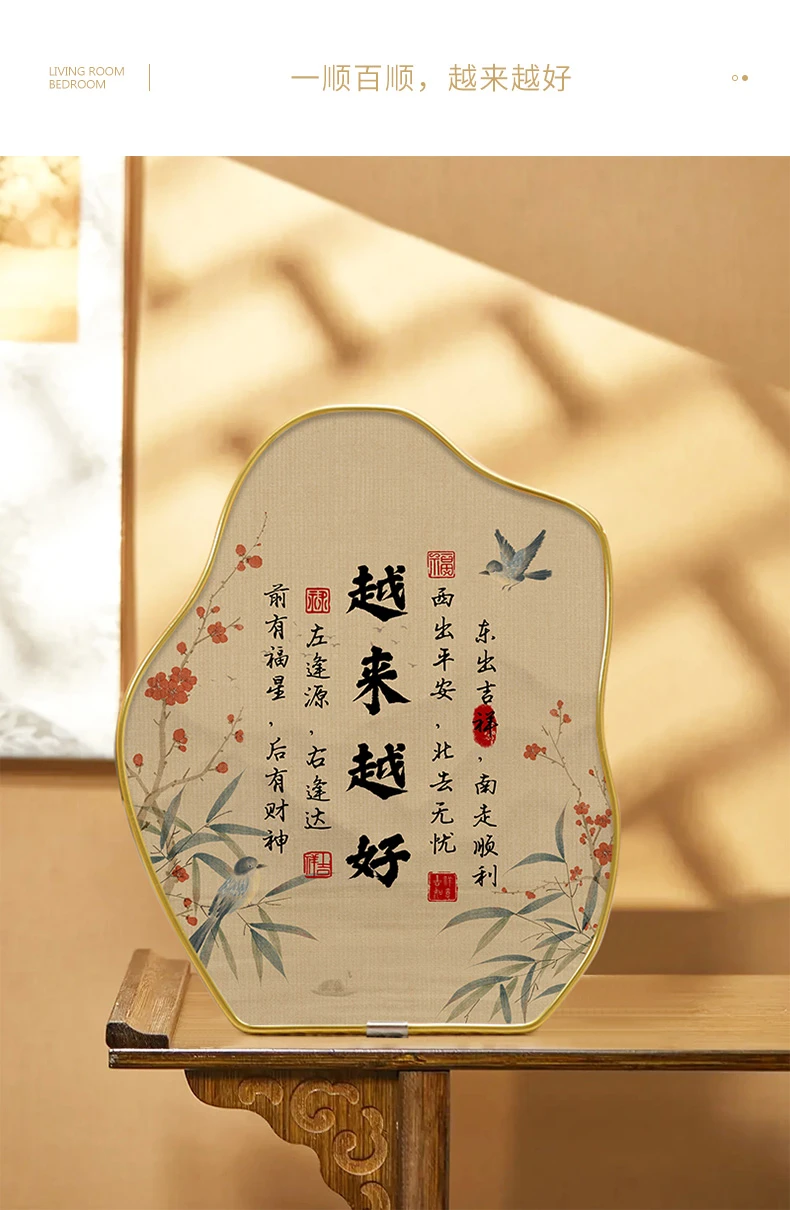 LIVING ROOM
BEDROOM
一顺百顺，越来越好
东出吉祥，南走顺利
福
西出平安，北去无忧
越来越好
左逢源，右逢达
前有福星，后有财神